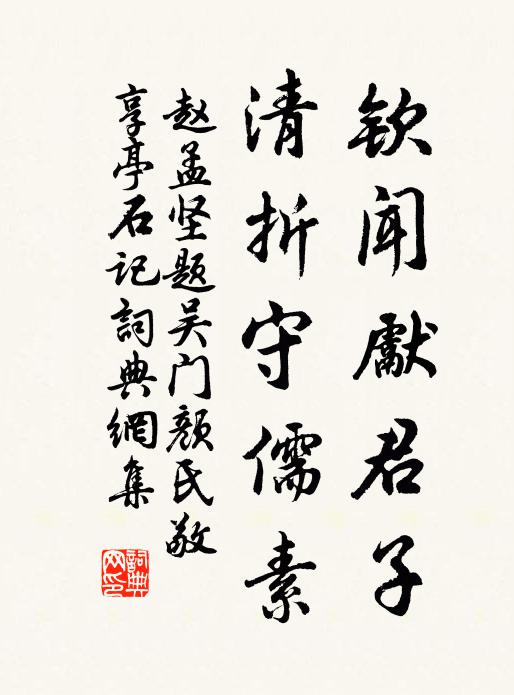 钦闻献君子
清折守儒素
赵孟坚题吴门颜氏敬
享亭石记詞典網集
詞典网印